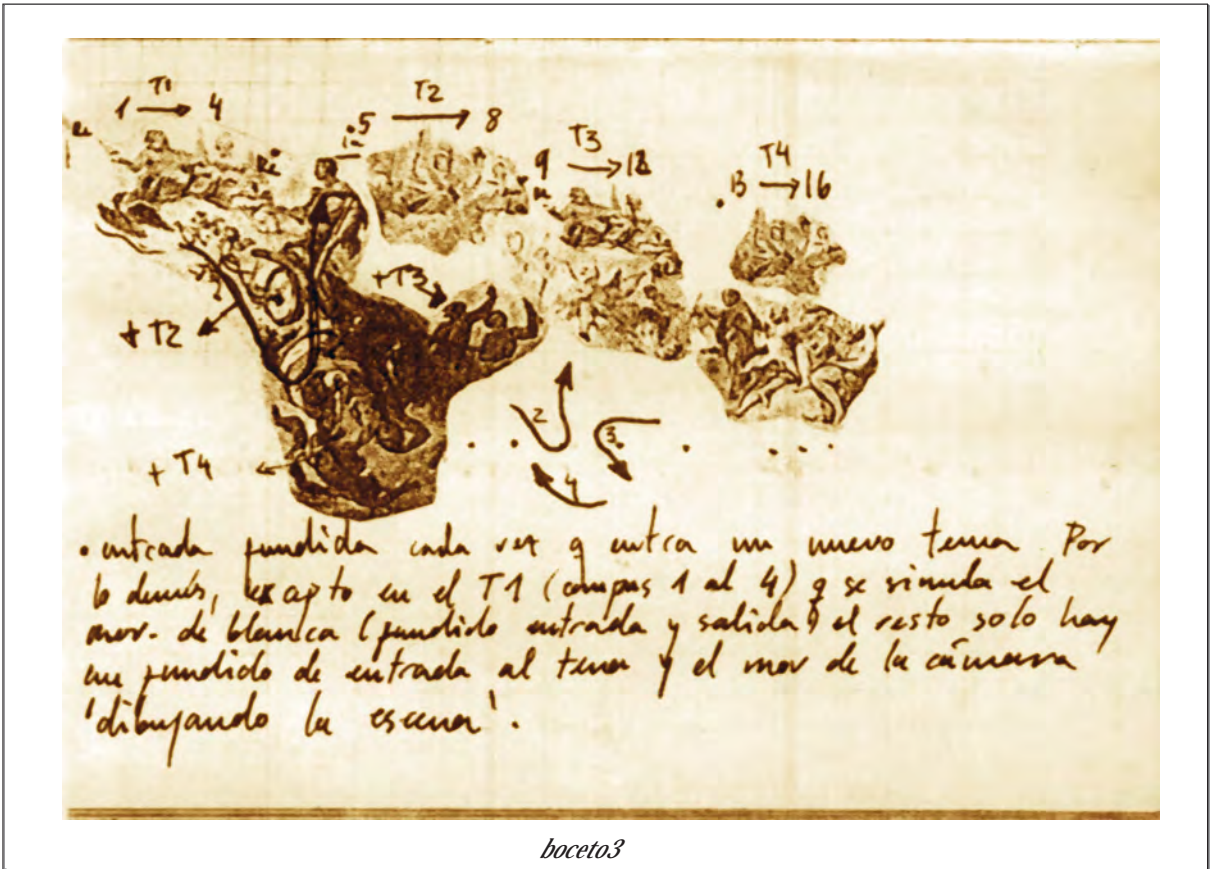 T1
1 → 4
T2
5 → 8
T3
9 → 12
T4
13 → 16
+T3
+ T2
2
3
4
+ T4
• entrada fundida cada vez q entra un nuevo tema Por
lo demás, excepto en el T1 (compas 1 al 4) q se simula el
mov. de blanca (fundido entrada y salida) el resto solo hay
un fundido de entrada al tema y el mov de la cámara
'dibujando la escena'.
boceto3